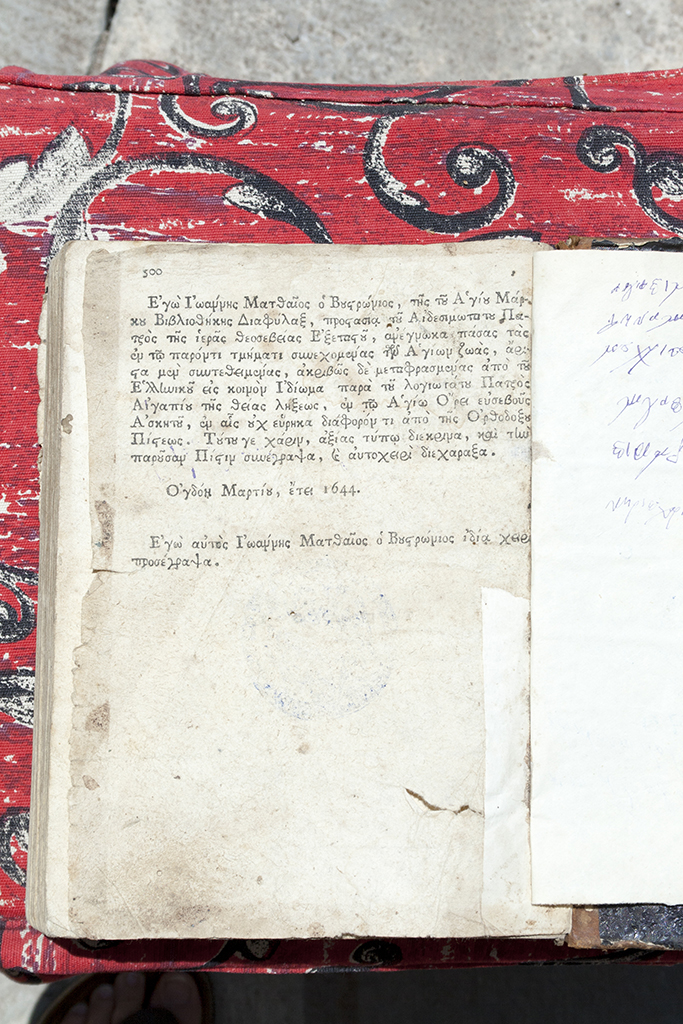 500
Ἐγὼ Ἰωάννης Ματθαῖος ὁ Βυστρώνιος, τῆς τοῦ Ἁγίου Μάρ-
κου Βιβλιοθήκης Διαφύλαξ, προστασία τοῦ Αἰδεσιμωτάτου Πα-
τρὸς τῆς ἱερᾶς θεοσεβείας Ἐξεταστοῦ, ἀνέγνωκα πάσας τὰς
ἐν τῷ παρόντι τμήματι συνεχομένας τῶν Ἁγίων ζωὰς, ἄρι-
στα μὲν συντεθειμένας, ἀκριβῶς δὲ μεταφρασμένας ἀπὸ τοῦ
Ἑλληνικοῦ εἰς κοινὸν Ἰδίωμα παρὰ τοῦ λογιωτάτου Πατρὸς
Ἀγαπίου τῆς θείας λήξεως, ἐν τῷ Ἁγίῳ Ὄρει εὐσεβοῦς
Ἀσκητοῦ, ἐν αἷς οὐχ εὕρηκα διάφορόν τι ἀπὸ τῆς Ὀρθοδόξου
Πίστεως. Τούτου γε χάριν, ἀξίας τύπῳ διέκρινα, καὶ τὴν
παροῦσαν Πίστιν συνέγραψα, ϗ αὐτοχειρὶ διεχάραξα.
Ὀγδόῃ Μαρτίου, ἔτει 1644.
Ἐγὼ αὐτὸς Ἰωάννης Ματθαῖος ὁ Βυστρώνιος ἰδίᾳ χειρὶ
προσέγραψα.